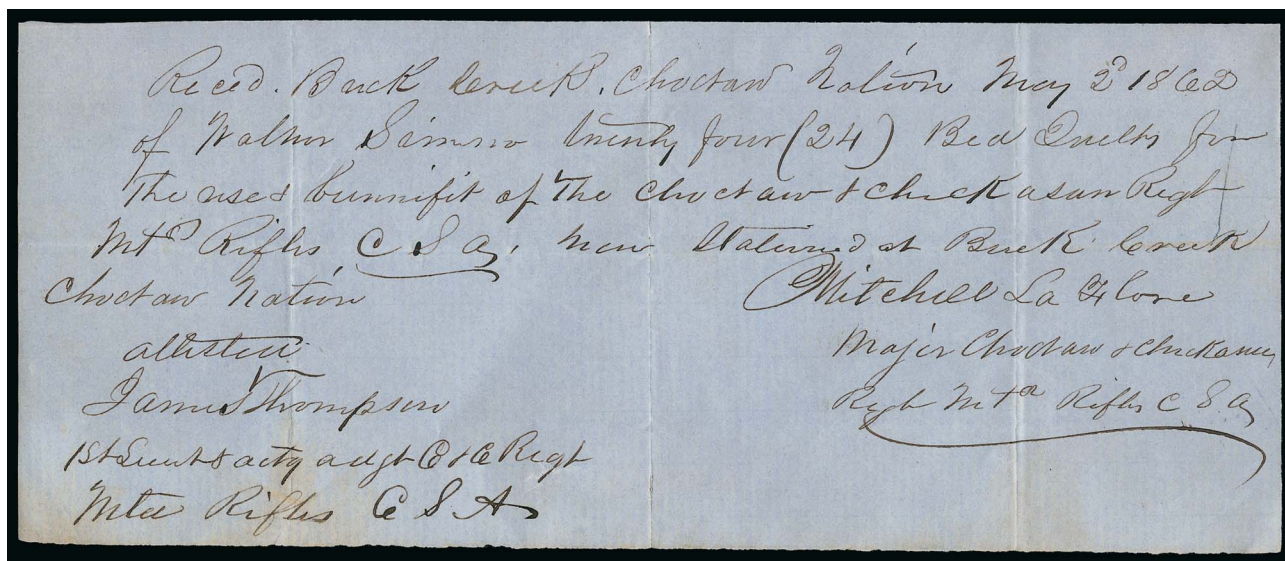 Reced. Buck Creek, Choctaw Nation May 2d 1862
of Simpso twenty four (24) Bed Quilts for
the use & bunnifit of the Choctaw & chickasaw Regt
Mtd Rifles, C S A, now Stationed at Buck Creek
Choctaw Nation
Mitchell La Flore
Major Choctaw & Chickasaw
Regt Mtd Rifles C S A
attested
James Thompson
1st Lieut & actg adgt C & C Regt
Mted Rifles C S A